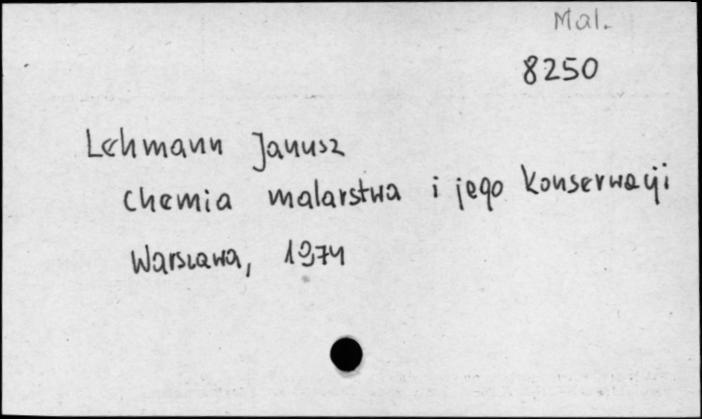 Mal.
8250
Lehmann Janusz
Chemia malarstwa i jego konserwacji
Warszawa, 1974